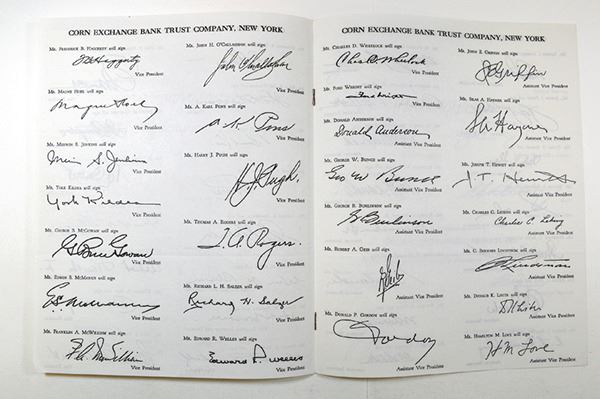 CORN EXCHANGE BANK TRUST COMPANY, NEW YORK
Mr. Frederick B. Haggerty will sign
Vice President
Mr. Magne Hoel will sign
Magne Hoel
Vice President
Mr. Merwin S. Jenkins will sign
Merwin S. Jenkins
Vice President
Mr. York Kildea will sign
York Kildea
Vice President
Mr. George B. McGowan will sign
Vice President
Mr. Edwin S. McManus will sign
Vice President
Mr. Franklin A. McWilliam will sign
F. A. McWilliam
Vice President
Mr. John H. O'Callaghan will sign
John O'Callaghan
Vice President
Mr. A. Karl will sign
Vice President
Mr. Harry J. Pugh will sign
H. J. Pugh.
Vice President
Mr. Thomas A. Rogers will sign
T. A. Rogers.
Vice President
Mr. Richard L. H. Salzer will sign
Richard H. Salzer
Vice President
Mr. Edward R. Welles will sign
Edward R. Welles
Vice President
CORN EXCHANGE BANK TRUST COMPANY, NEW YORK
Mr. Charles D. Wheelock will sign
Chas D. Wheelock
Vice President
Mr. Ford Wright will sign
Ford Wright
Vice President
Mr. Donald Anderson will sign
Donald Anderson
Assistant Vice President
Mr. George W. Bunce will sign
Geo W Bunce
Assistant Vice President
Mr. George R. Burlinson will sign
Burlinson
Assistant Vice President
Mr. Robert A. Geib will sign
Assistant Vice President
Mr. Donald P. Gordon will sign
Gordon
Assistant Vice President
Mr. John E. Griffin will sign
Griffin
Assistant Vice President
Mr. Sear A. Hayner will sign
Assistant Vice President
Mr. Joseph T. Hewitt will sign
J. T. Hewitt
Assistant Vice President
Mr. Charles G. will sign
Assistant Vice President
Mr. C. Lindstrom will sign
Assistant Vice President
Mr. Donald K. Lister will sign
D K Lister
Assistant Vice President
Mr. Hamilton M. Love will sign
H M Love
Assistant Vice President